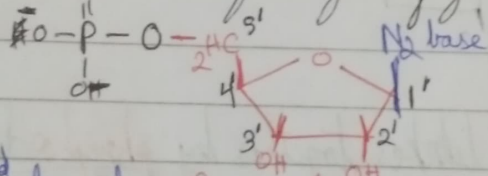 -O-P-O-H2C 5' N2 base
O
OH 4' 1'
3' 2'
OH OH